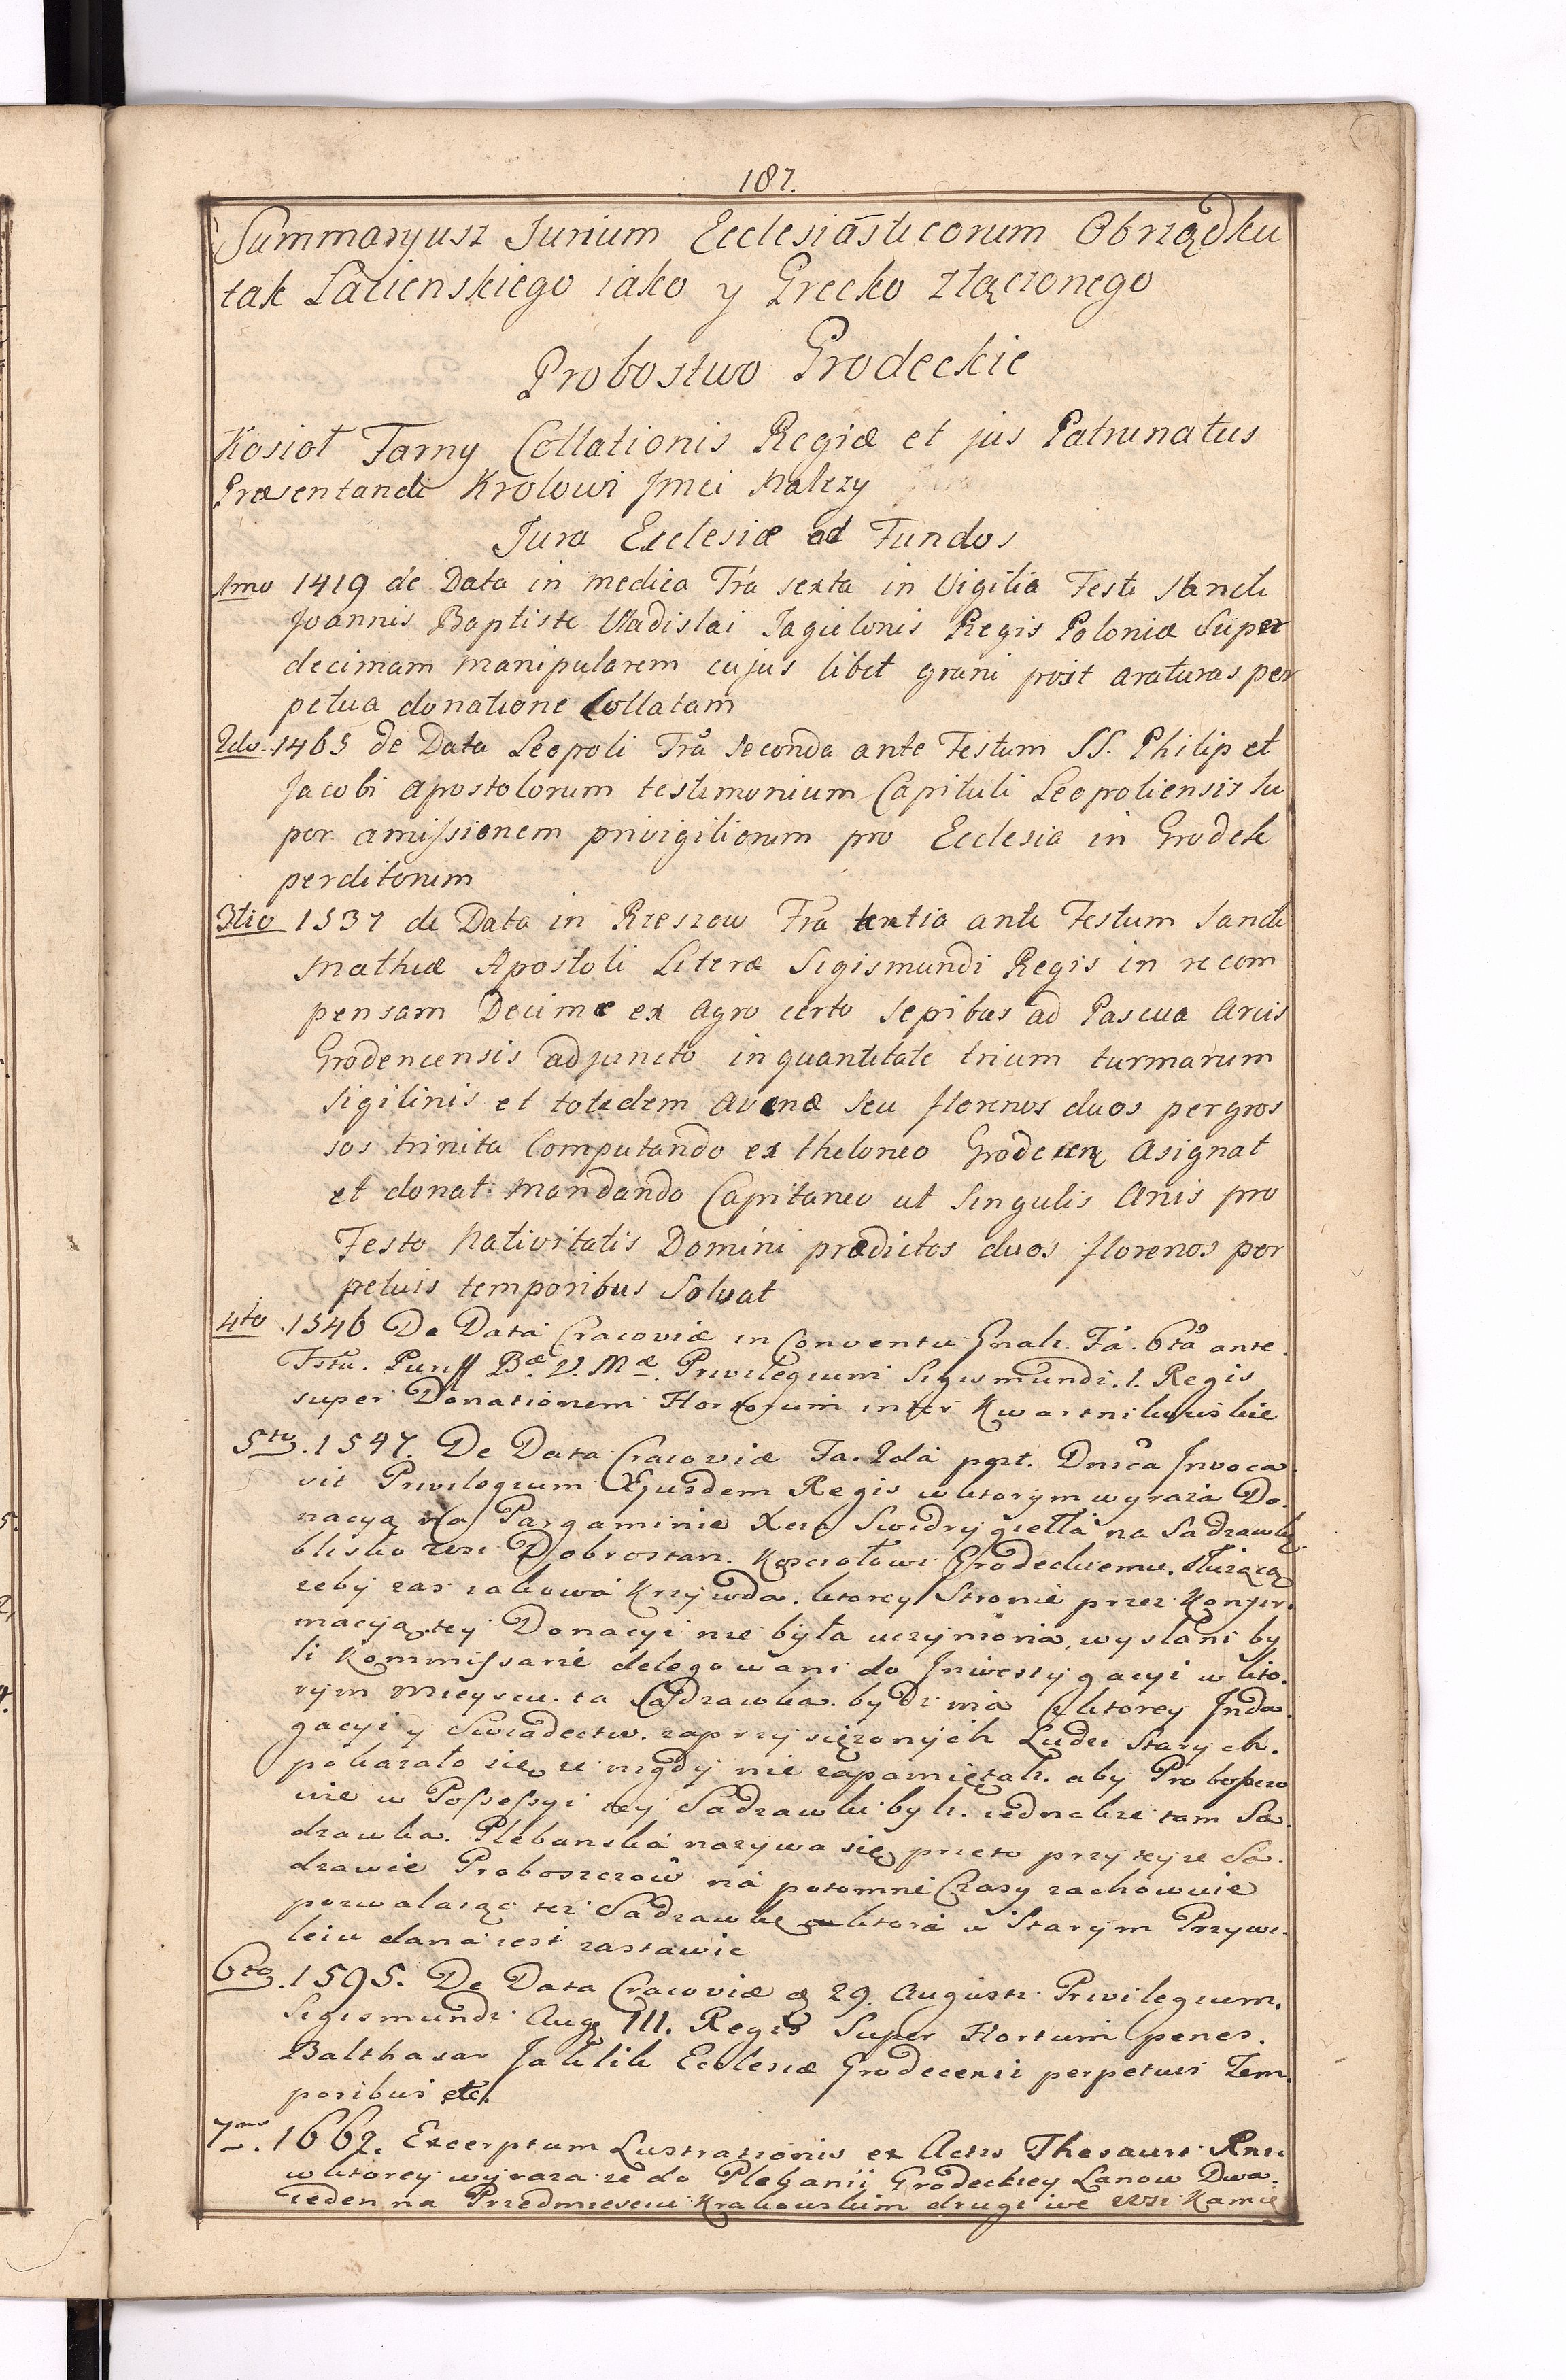 187.
Summaryusz Iurium Ecclesiásticorum Obrządku
tak Łacienskiego iako y Grecko złączonego
Probostwo Grodeckie
Kosioł Farny Collationis Regiæ et jus Patrunatus
Præsentandi Krolowi Jmci Nalezy
Jura Ecclesiæ ad Fundos
1mo 1419 de Data in medica Fra sexta in Vigilia Festi Sancti
Joannis Baptiste Vladislai Jagielonis Regis Poloniæ Super
decimam manipularem cujus libet grani post araturas per
petua donatione Collatam
2do. 1465 de Data Leopoli Fra Seconda ante Festum SS. Philip et
Jacobi Apostolorum testimonium Capituli Leopoliensis Su
per amissionem privigiliorum pro Ecclesia in Grodek
perditorum
3tio 1537 de Data in Rzeszow Fra tertia ante Festum Sancti
Mathiæ Apostoli Literæ Sigismundi Regis in recom
pensam Decimæ ex Agro certo Sepibus ad Pascua Arcis
Grodencensis adjuncto in quantitate trium turmarum
Sigilinis et totidem Avenæ Seu florenos duos per gros
sos trinita Computando ex theloneo Grodecen Asignat
et donat Mandando Capitaneo ut Singulis Anis pro
Festo Nativitatis Domini prædictos duos florenos per
petuis temporibus Solvat
4to. 1546 De Data Cracoviæ in Conventu Gnali. Fa. 6ta ante.
Fstu. Puriff Bæ. V. Mæ. Privilegium Sigismundi. I. Regis
super Donationem Hortorum inter Kwartnikowskie
5to. 1547. De Data Cracoviæ Fa. 2da post. Dnica Invoca
vit Privilegium Ejusdem Regis w ktorym wyraża Do
nacyą na Pargaminie Xcia Swidrygiełła na Sadzawkę
blisko wsi Dobrostan. Kosciołowi Grodeckiemu. służącą
zeby zas iakowa Krzywda. ktorey Stronie przez Konfir
macyą tey Donacyi nie była uczyniona, wysłani by
li Kommissarze delegowani do Inwestygacyi w kto
rym mieyscu. ta Sadzawka. bydz ma z ktorey Inda
gacyi y Swiadectw. zaprzysiężonych Ludzi Starych.
pokazało się ze nigdy nie zapamiętali. aby Proboszczo
wie w Possessyi tey Sadzawki byli. iednakze tam Sa
dzawka. Plebanska nazywa się przeto przy teyze Sa
dzawie Proboszczow na potomne Czasy zachowuie
pozwalaiąc tez Sadzawkę ktora w Starym Przywi
leiu dana iest zastawic
6to. 1595. De Data Cracoviæ 29. Augusti Privilegium.
Sigismundi Aug III. Regis Super Hortum penes.
Balthasar Jaklik Ecclesiæ Grodecensi perpetuis Tem
poribus etc.
7mo. 1662. Excerptum Lustrationis ex Actis Thesauri Rni
w ktorey wyraza ze do Plebanii Grodeckiey Lanow Dwa.
ieden na Przedmiesciu Krakowskim drugi we wsi Kamie